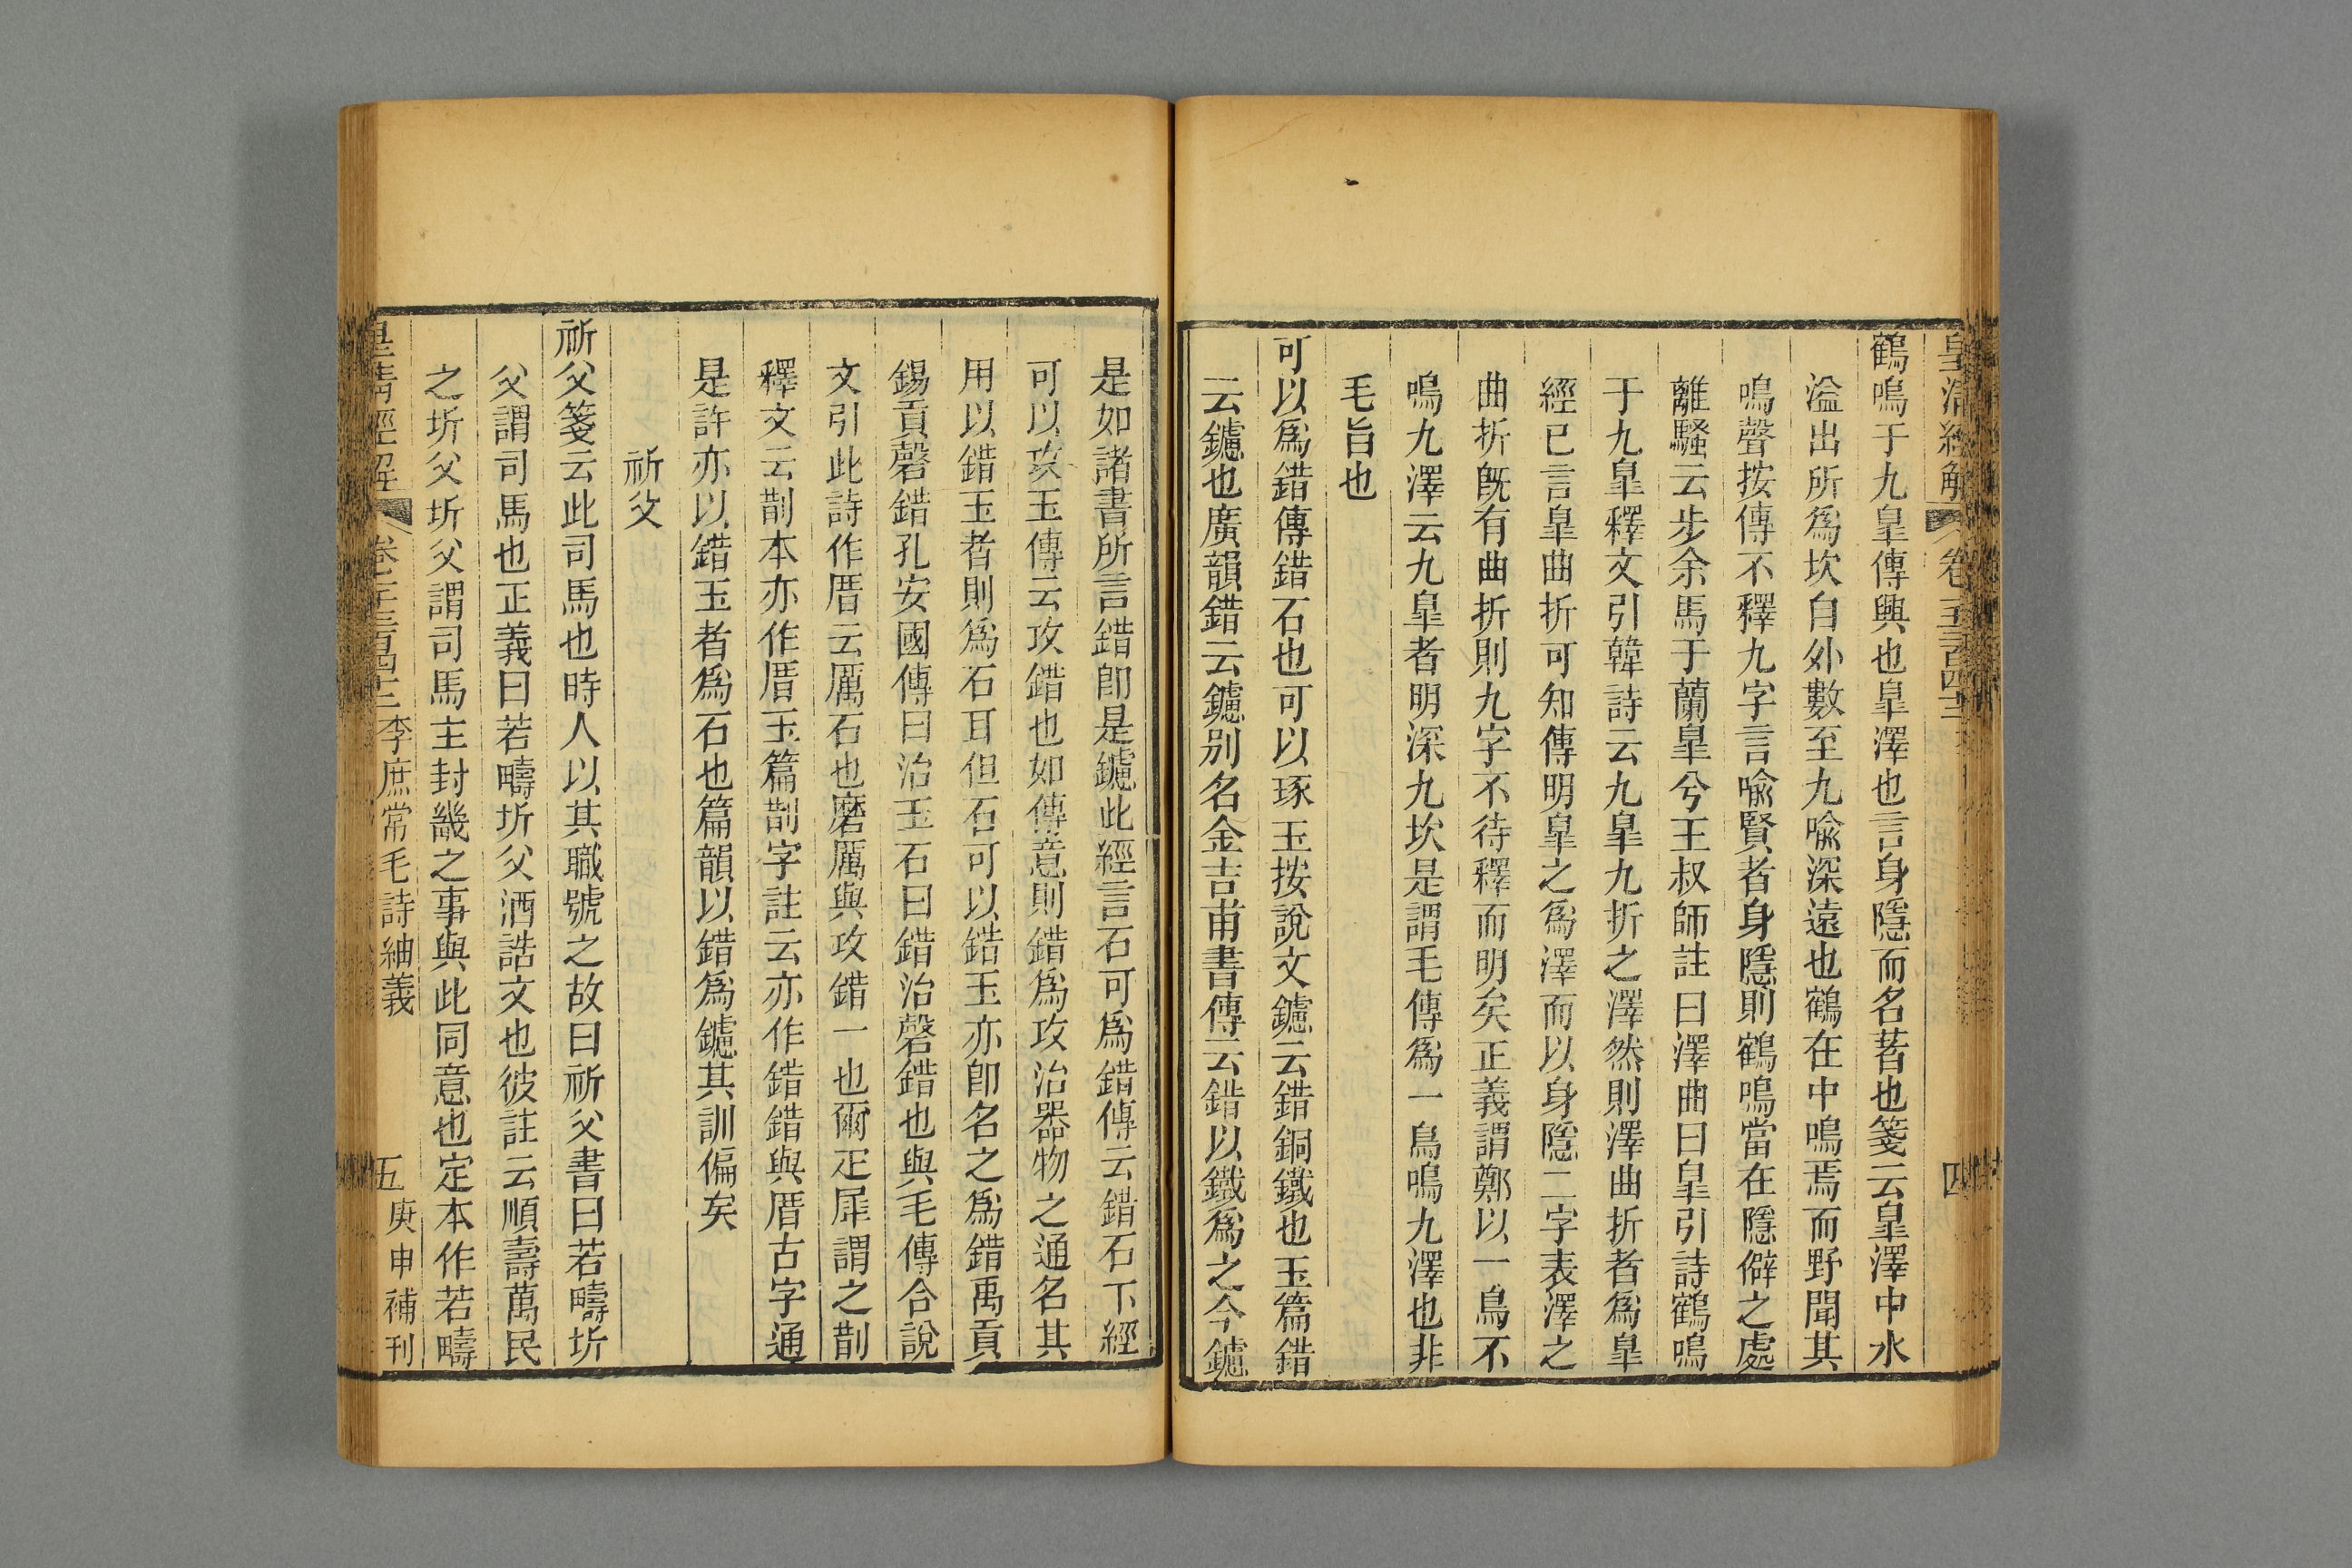 鶴鳴于九臯傳興也臯澤也言身隱而名著也箋云臯澤中水
溢出所爲坎自外數至九喩深遠也鶴在中鳴焉而野聞其
鳴聲按傳不釋九字言喩賢者身隱則鶴鳴當在隱僻之處
離騷云步余馬于蘭臯兮王叔師註曰澤曲曰臯引詩鶴鳴
于九臯釋文引韓詩云九臯九折之澤然則澤曲折者爲臯
經已言臯曲折可知傳明臯之爲澤而以身隱二字表澤之
曲折旣有曲折則九字不待釋而明矣正義謂鄭以一鳥不
鳴九澤云九臯者明深九坎是謂毛傳爲一鳥鳴九澤也非
毛旨也
可以爲錯傳錯石也可以琢玉按說文鑢云錯銅鐵也玉篇錯
云鑢也廣韻錯云鑢别名金吉甫書傳云錯以鐵爲之今鑢
是如諸書所言錯卽是鑢此經言石可爲錯傳云錯石下經
可以攻玉傳云攻錯也如傳意則錯爲攻治器物之通名其
用以錯玉者則爲石耳但石可以錯玉亦卽名之爲錯禹貢
錫貢磬錯孔安國傳曰治玉石曰錯治磬錯也與毛傳合說
文引此詩作厝云厲石也磨厲與攻錯一也爾疋犀謂之剒
釋文云剒本亦作厝玉篇剒字註云亦作錯錯與厝古字通
是許亦以錯玉者爲石也篇韻以錯爲鑢其訓偏矣
祈父
祈父箋云此司馬也時人以其職號之故曰祈父書曰若疇圻
父謂司馬也正義曰若疇圻父酒誥文也彼註云順壽萬民
之圻父圻父謂司馬主封畿之事與此同意也定本作若疇
皇清經解 卷 李庶常毛詩紬義 五 庚申補刊